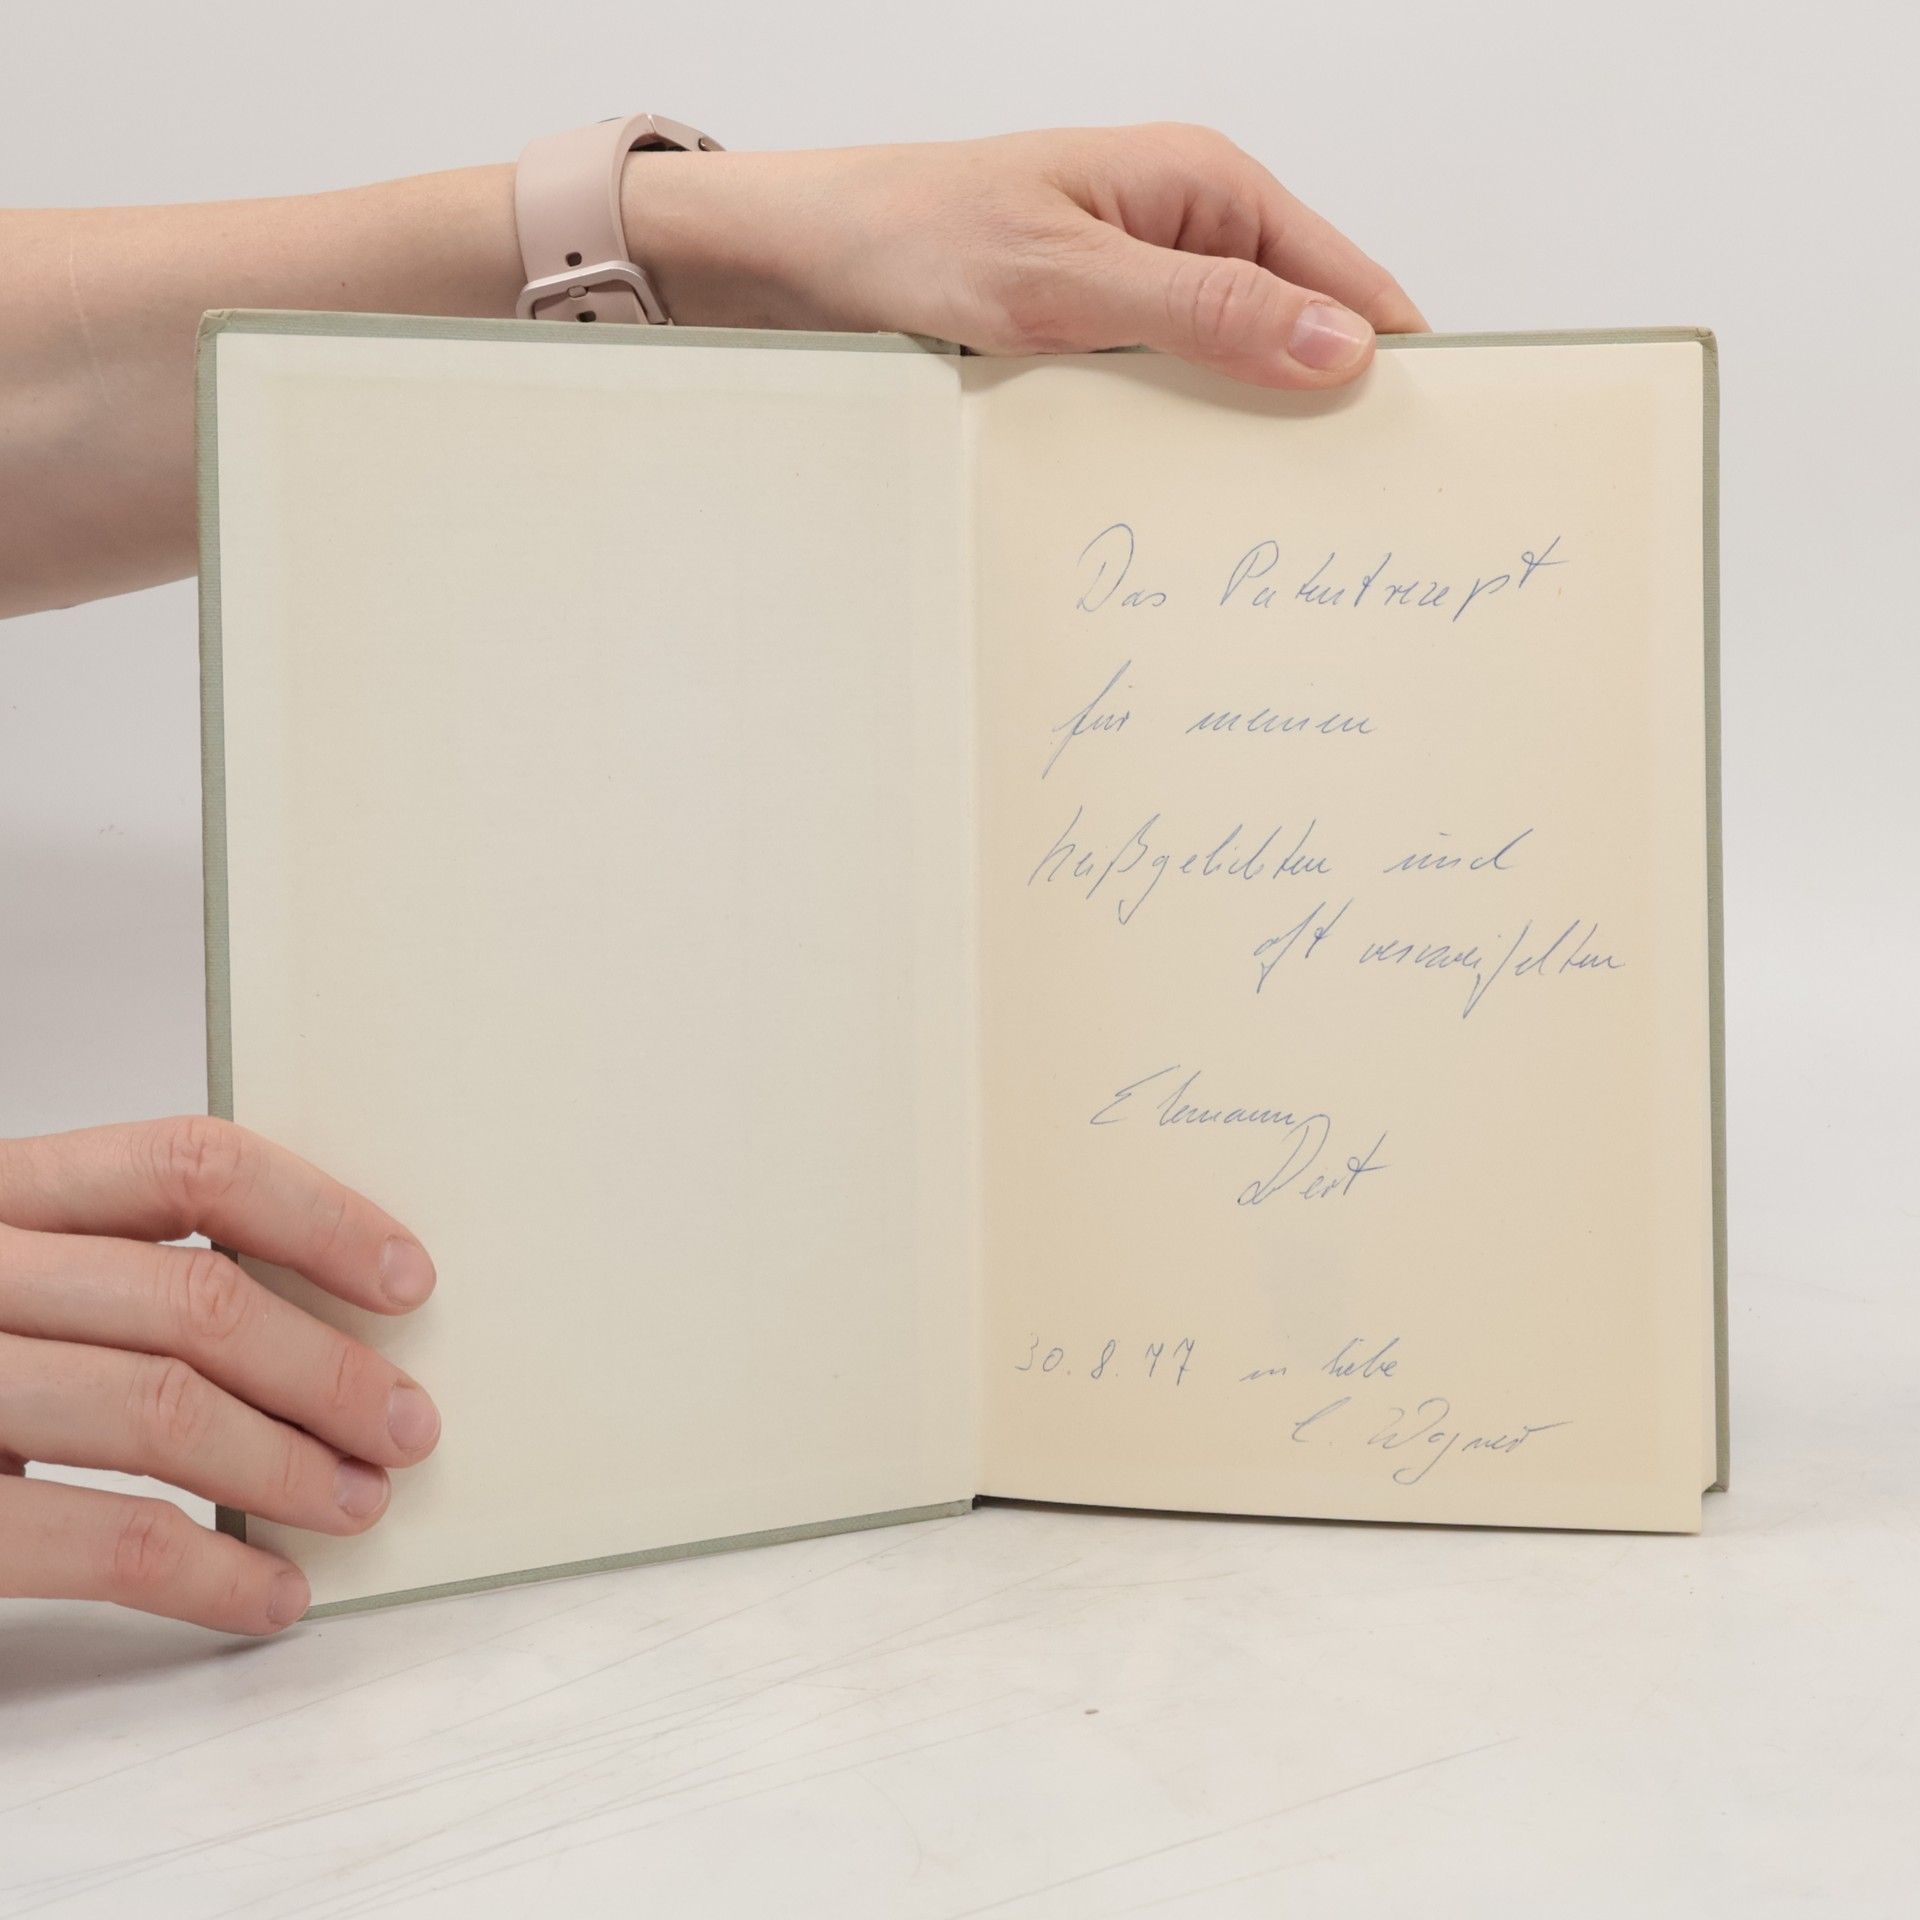 Das Patentrezept
für meinen
heißgeliebten und
oft verzweifelten
Ehemann
30.8.77 in Liebe
C. Wagner